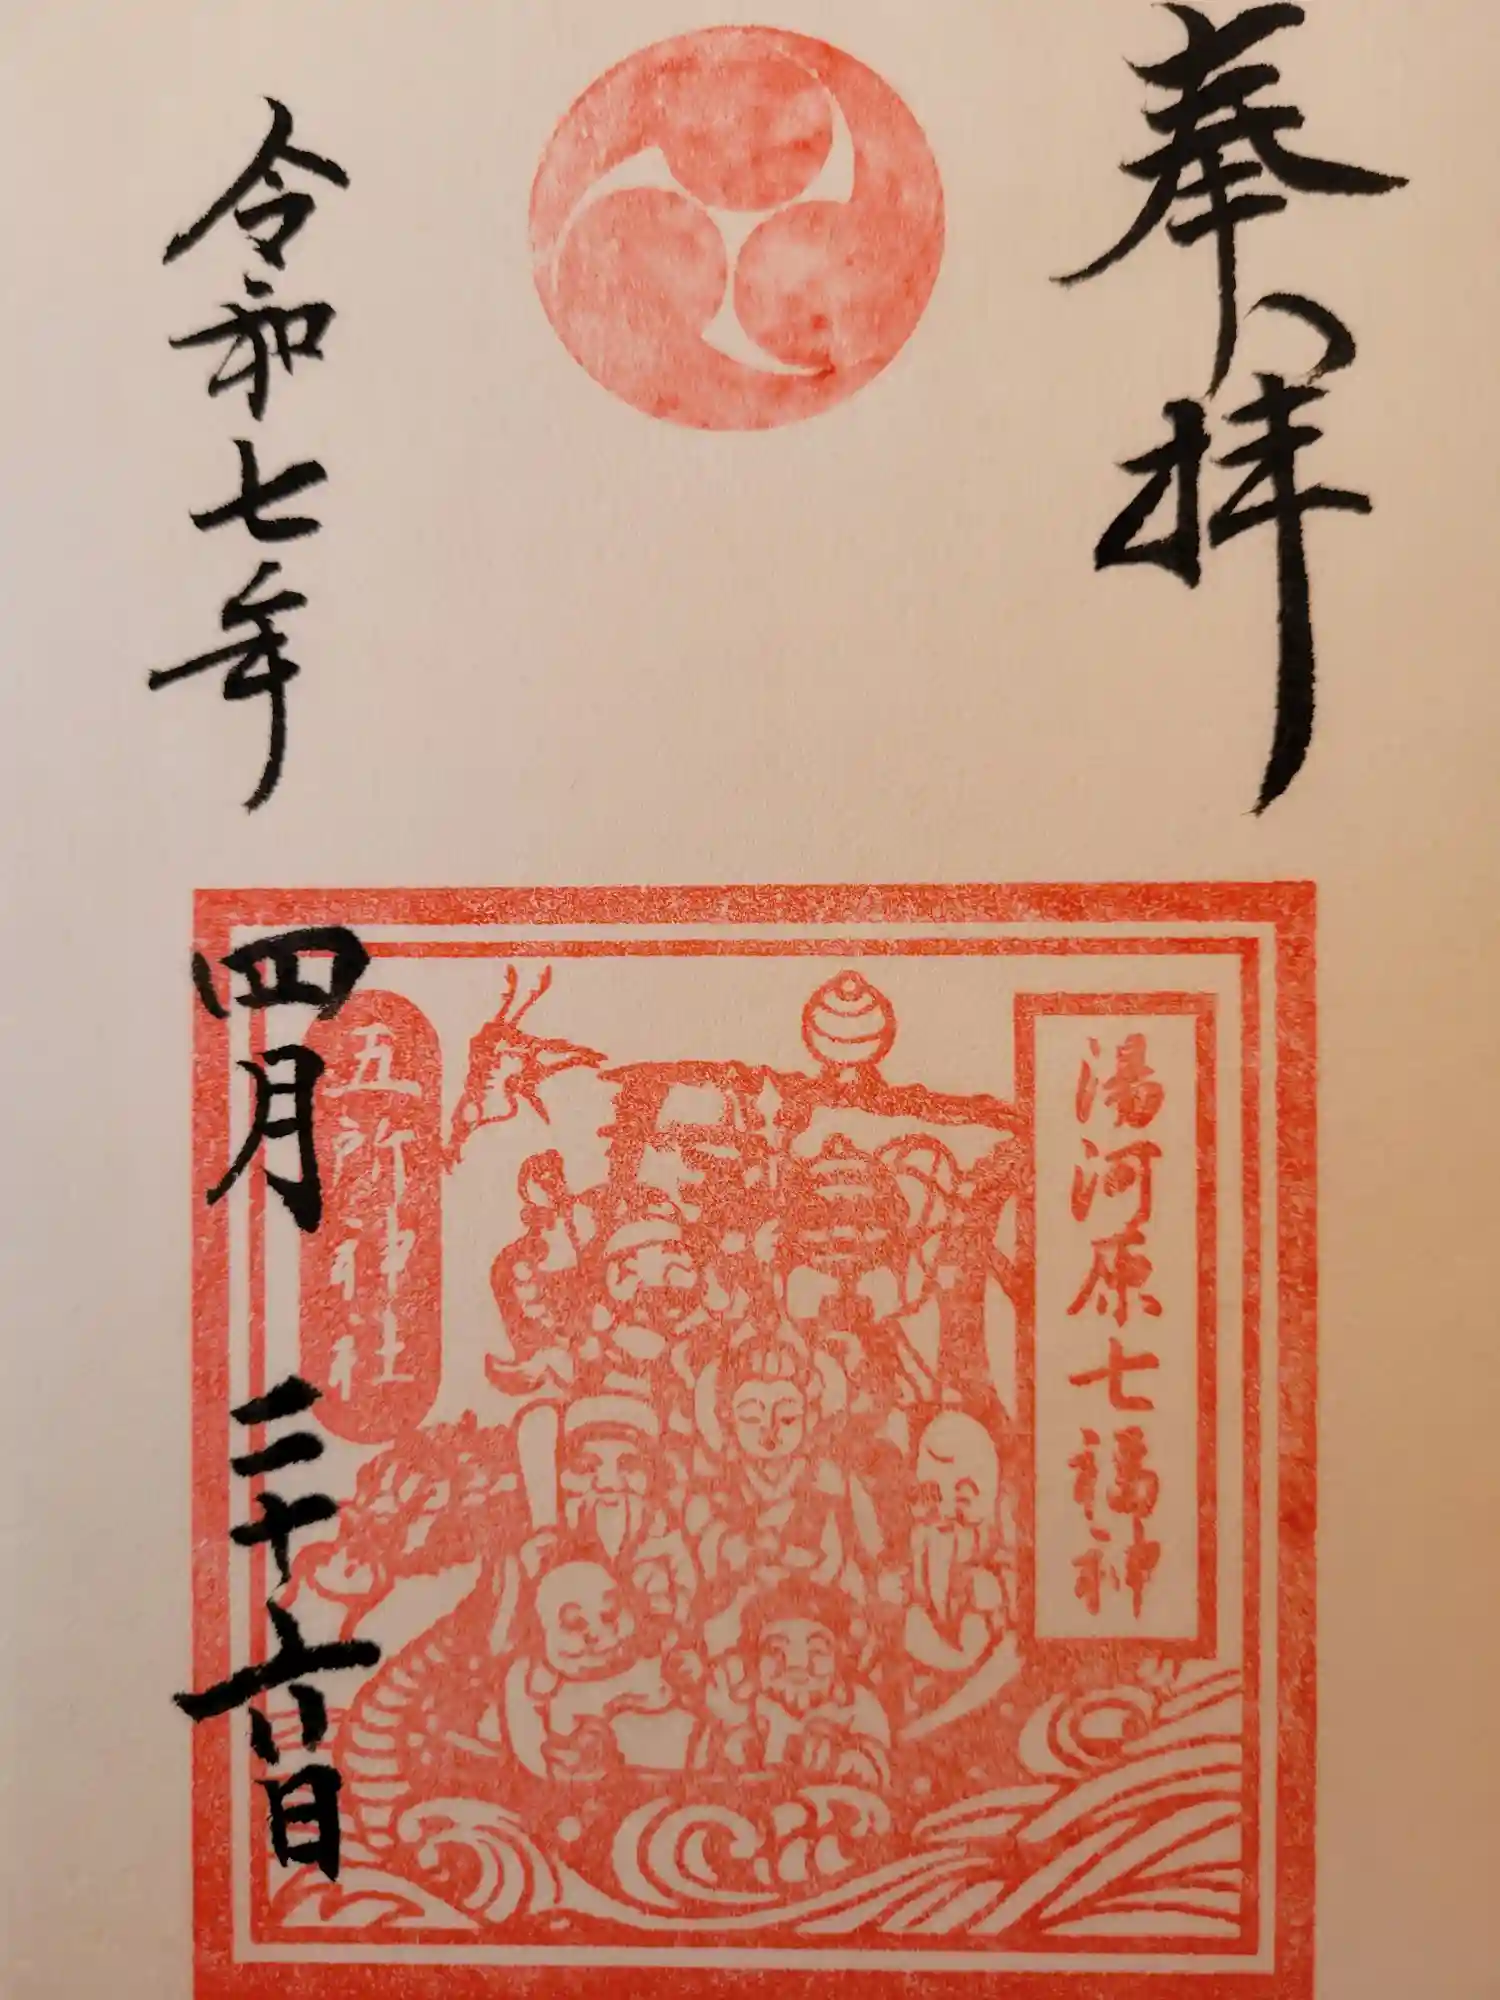 奉拝
湯河原七福神
五所神社
令和七年
四月二十六日